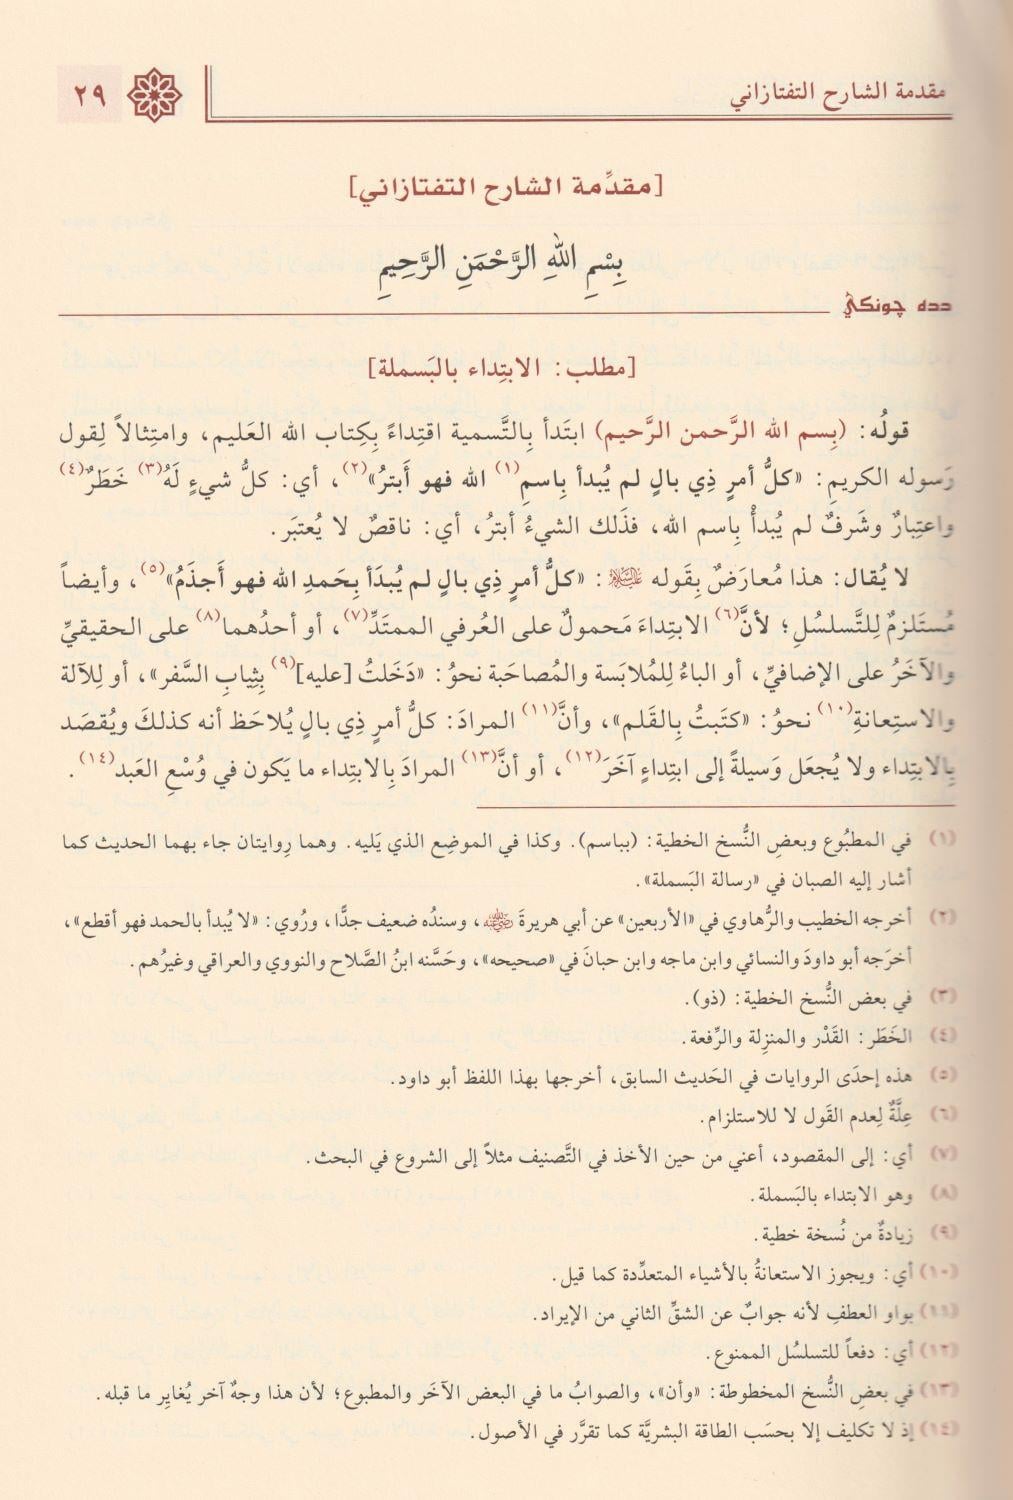 مقدمة الشارح التفتازاني
٢٩
[مقدِّمة الشارح التفتازاني]
بِسْمِ اللهِ الرَّحْمَنِ الرَّحِيمِ
دده چونكي
[مطلب: الابتِداء بالبَسملة]
قولُه: (بِسم الله الرَّحمن الرَّحيم) ابتَدأ بِالتَّسمية اقتِداءً بِكِتاب الله العَليم، وامتِثالاً لِقول
رَسوله الكريمِ: «كلُّ أمرٍ ذِي بالٍ لم يُبدأ بِاسمِ(١) الله فهو أَبترُ»(٢)، أي: كلُّ شيءٍ لَهُ(٣) خَطَرٌ(٤)
واعتِبارٌ وشَرفٌ لم يُبدأْ بِاسم الله، فذَلك الشيءُ أبترُ، أي: ناقصٌ لا يُعتبَر.
لا يُقال: هذا مُعارَضٌ بِقَوله عليه السلام: «كلُّ أمرٍ ذِي بالٍ لم يُبدَأ بِحَمدِ الله فهو أَجذَمُ»(٥)، وأيضاً
مُستَلزِمٌ لِلتَّسلسُلِ؛ لأنَّ(٦) الابتِداءَ مَحمولٌ على العُرفي الممتَدِّ(٧)، أو أحدُهما(٨) على الحقيقيِّ
والآخَرُ على الإضافيِّ، أو الباءُ لِلمُلابَسة والمُصاحَبة نحوُ: «دَخَلتُ [عليه](٩) بِثِيابِ السَّفر»، أو لِلآلة
والاستِعانةِ(١٠) نحوُ: «كتَبتُ بِالقَلم»، وأنَّ(١١) المرادَ: كلُّ أمرٍ ذِي بالٍ يُلاحَظ أنه كذلكَ ويُقصَد
بِالابتِداء ولا يُجعَل وَسيلةً إلى ابتِداءٍ آخَرَ(١٢)، أو أنَّ(١٣) المرادَ بِالابتِداء ما يَكون في وُسْعِ العَبد(١٤).
(١) في المطبُوع وبعضِ النُّسخ الخطية: (بباسم). وكذا في الموضِع الذي يَليه. وهما رِوايتان جاء بهما الحديث كما
أشار إليه الصبان في «رسالة البَسملة».
(٢) أخرجه الخطيب والرُّهاوي في «الأربعين» عن أبي هريرةَ رضي الله عنه، وسندُه ضعيف جدًّا، ورُوي: «لا يُبدأ بالحمد فهو أقطع»،
أخرَجه أبو داودَ والنسائي وابن ماجه وابن حبانَ في «صحيحه»، وحَسَّنه ابنُ الصَّلاح والنووي والعراقي وغيرُهم.
(٣) في بعض النُّسخ الخطية: (ذو).
(٤) الخَطَر: القَدْر والمنزِلة والرِّفعة.
(٥) هذه إحدَى الروايات في الحَديث السابق، أخرجها بهذا اللفظ أبو داود.
(٦) عِلَّةٌ لِعدم القَول لا للاستلزام.
(٧) أي: إلى المقصود، أعني من حين الأخذ في التَّصنيف مثلاً إلى الشروع في البحث.
(٨) وهو الابتداء بالبَسملة.
(٩) زيادةٌ من نُسخة خطية.
(١٠) أي: ويجوز الاستعانةُ بالأشياء المتعدِّدة كما قيل.
(١١) بواو العطفِ لأنه جوابٌ عن الشقِّ الثاني من الإيراد.
(١٢) أي: دفعاً للتسلسُل الممنوع.
(١٣) في بعضِ النُّسخ المخطوطة: «وأن»، والصوابُ ما في البعض الآخَر والمطبوع؛ لأن هذا وجهٌ آخر يُغايِر ما قبله.
(١٤) إذ لا تكليف إلا بحسَب الطاقة البشريَّة كما تقرَّر في الأصول.